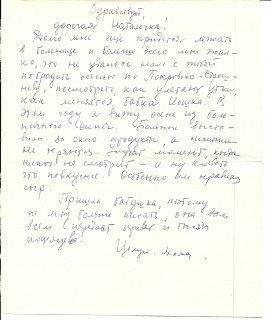 Здравствуй,
дорогая Наталочка!
Долго мне еще придется лежать
в больнице и больше всего мне жал-
ко, что не удалось нам с тобой
побродить осенью по Покровско-Стреш-
неву, посмотреть, как улетают утки,
как меняется бабка Йошка. В
этом году я вижу осень из боль-
ничного окна. Больные выстав-
или за окно продукты, а синички
не теряются. Улучат момент, когда
никто не смотрит – и ну клевать
что повкуснее. Особенно им нравится
сыр.
Пришла бабушка, поэтому
не могу больше писать, она вам
всем передает привет и тысячу
поцелуев.
Целую. мама